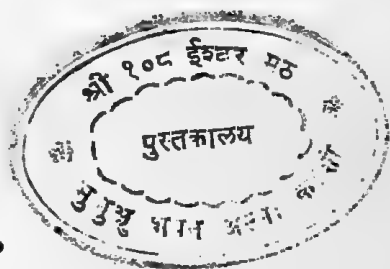 श्री १०८ ईश्वर मठ
पुस्तकालय
मुमुक्षु भवन